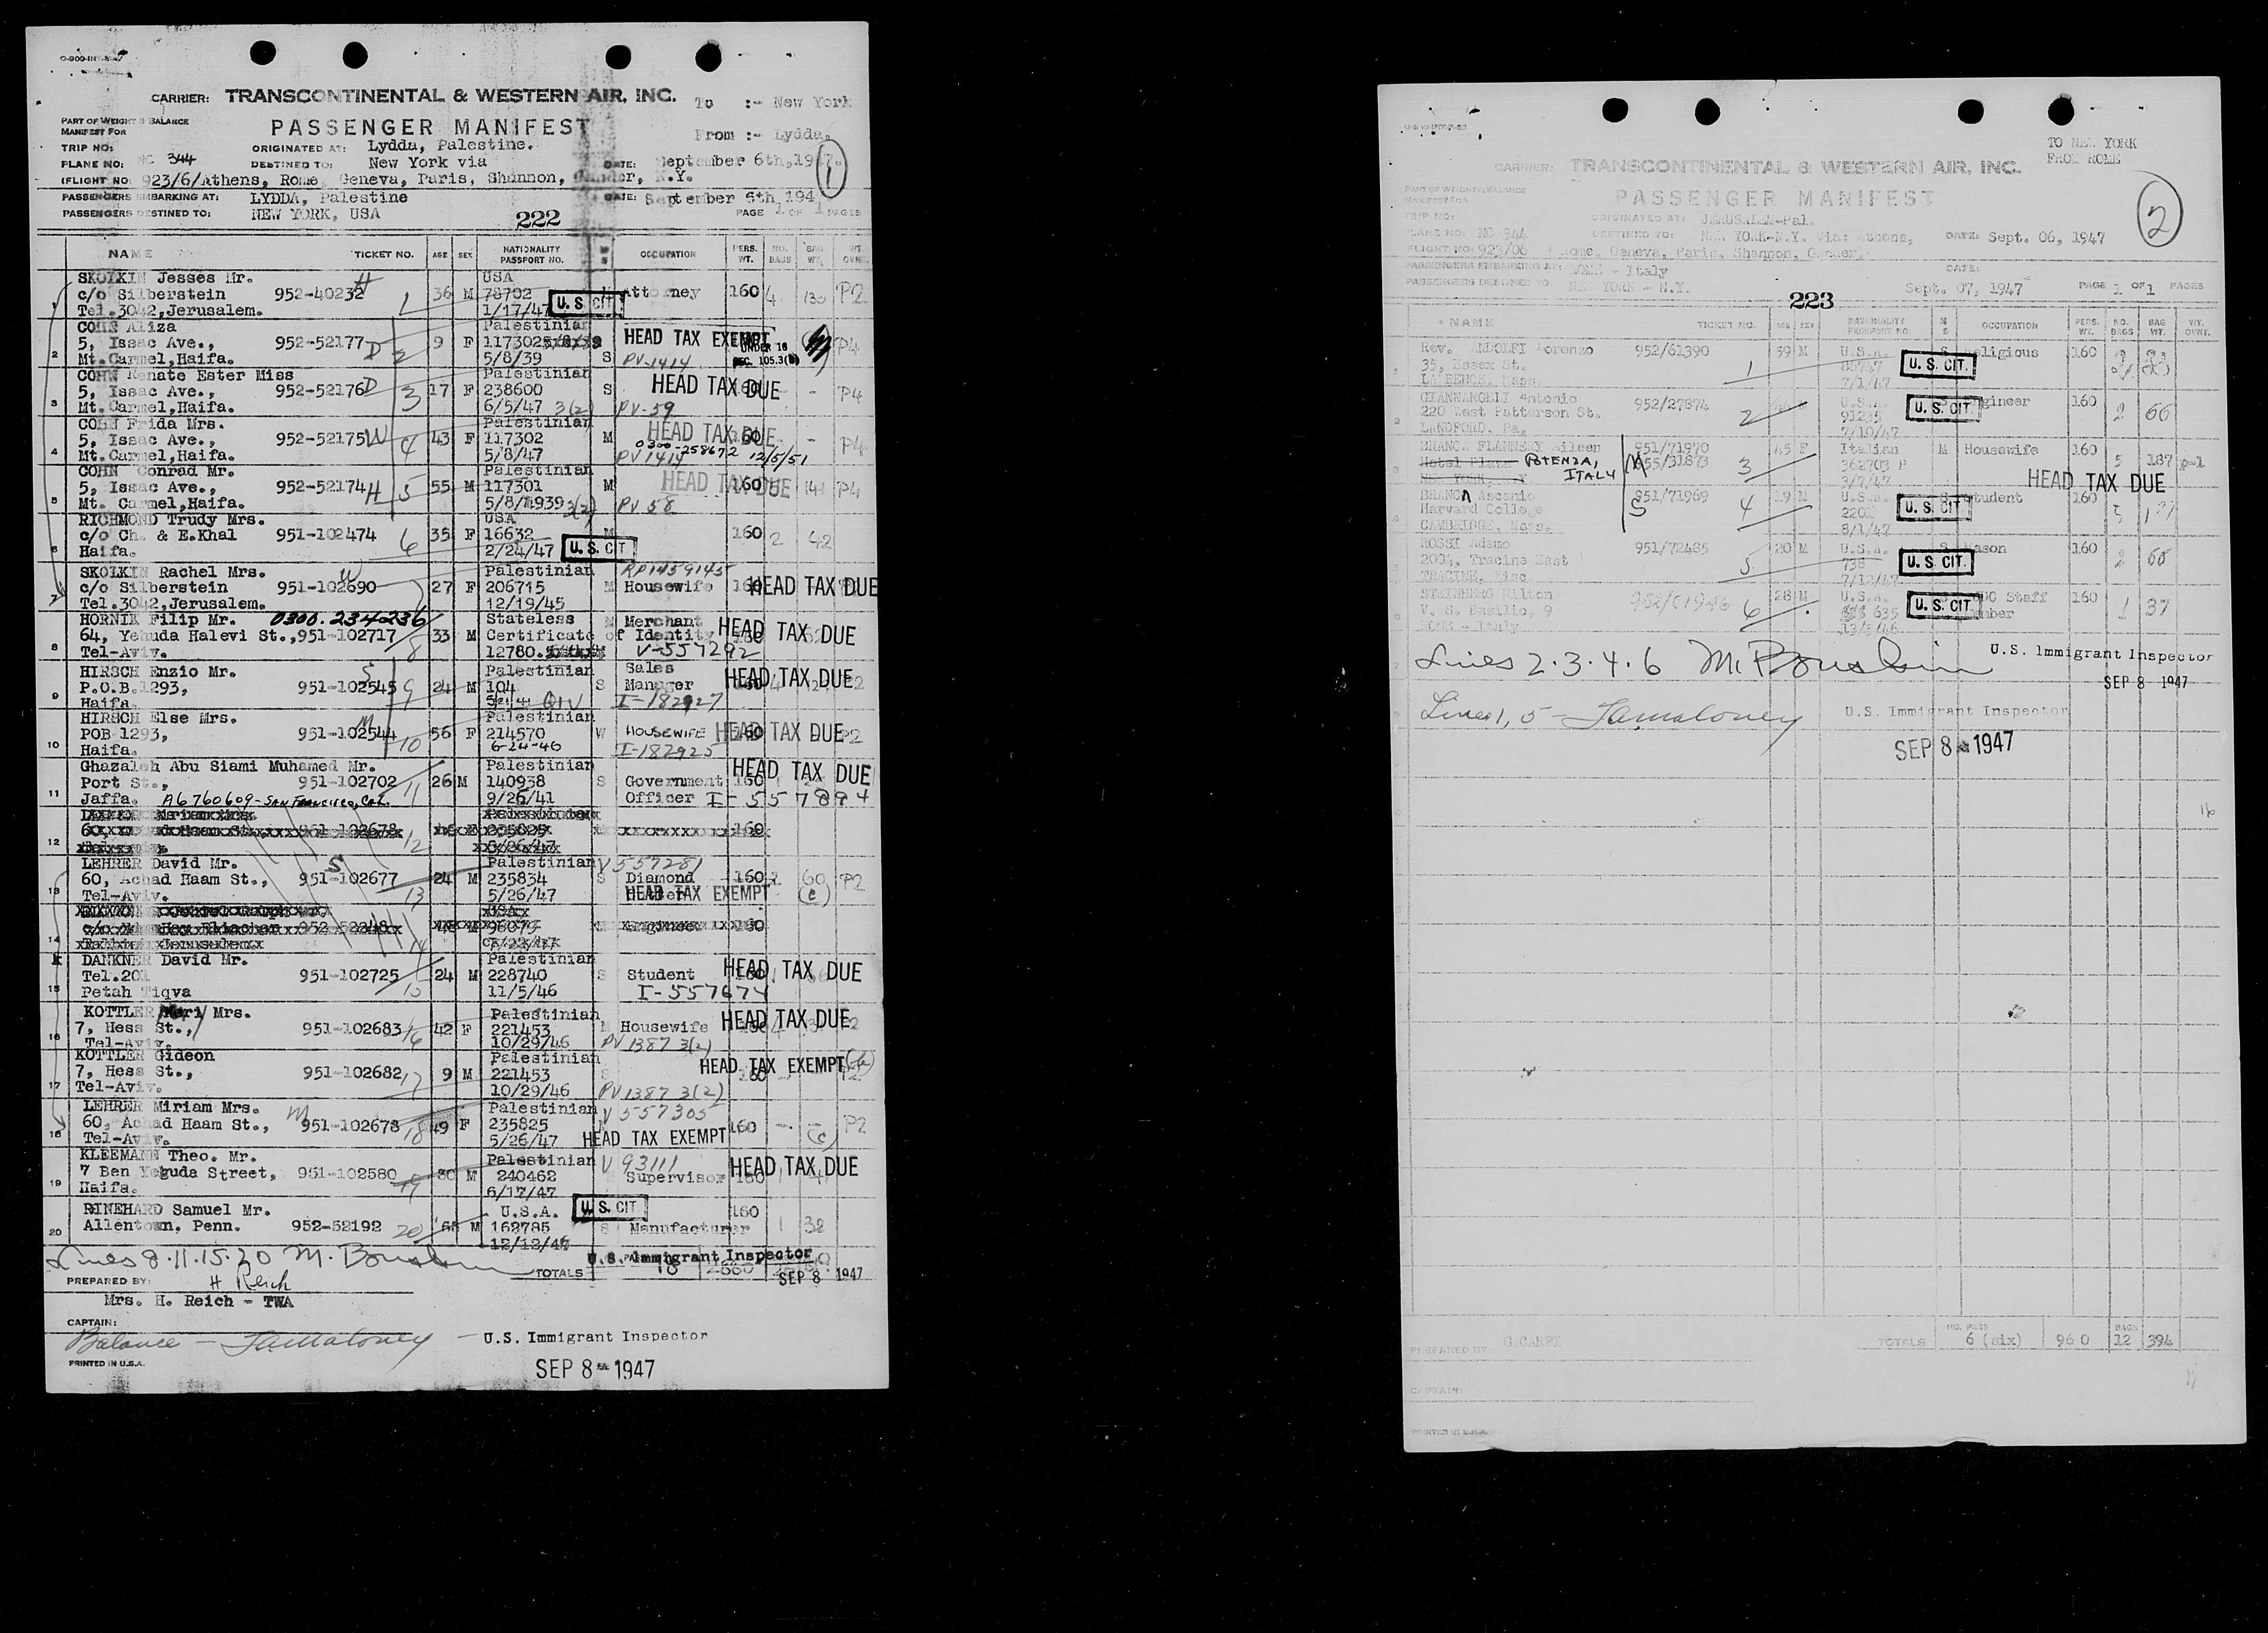 CARRIER: TRANSCONTINENTAL & WESTERN AIR, INC.
To :- New York
PART OF WEIGHT & BALANCE
MANIFEST FOR
PASSENGER MANIFEST
From :- Lydda,
TRIP NO:
ORIGINATED AT: Lydda, Palestine.
PLANE NO: NC 344
DESTINED TO: New York via
DATE: September 6th, 1947.
1
(FLIGHT NO: 923/6/Athens, Rome, Geneva, Paris, Shannon, Gander, N.Y.
PASSENGERS EMBARKING AT: LYDDA, Palestine
DATE: September 6th, 194
PASSENGERS DESTINED TO: NEW YORK, USA
222
PAGE 1 OF 1 PAGES
NAME TICKET NO. AGE SEX NATIONALITY PASSPORT NO. M S OCCUPATION PERS. WT. NO. BAGS BAG WT. WT. OVWT.
SKOLKIN Jesses Mr. H USA
1 c/o Silberstein 952-40232 1 36 M 78702 U. S. CIT. Attorney 160 4 130 P2
Tel.3042,Jerusalem. 1/17/47
COHN Aliza Palestinian
2 5, Issac Ave., 952-52177 D 2 9 F 117302 HEAD TAX EXEMPT UNDER 16 SEC. 105.3(b) P4
Mt.Carmel,Haifa. 5/8/39 S PV-1414
COHN Renate Ester Miss Palestinian
5, Issac Ave., 952-52176 D 3 17 F 238600 S HEAD TAX DUE - P4
3 Mt.Carmel,Haifa. 6/5/47 3(2) PV-59
COHN Frida Mrs. Palestinian
5, Issac Ave., 952-52175 W 4 43 F 117302 M HEAD TAX DUE - P4
4 Mt.Carmel,Haifa. 5/8/47 PV1414 0300-258672 12/5/51
COHN Conrad Mr. Palestinian
5 5, Issac Ave., 952-52174 H 5 55 M 117301 M HEAD TAX DUE 160 141 P4
Mt. Carmel,Haifa. 5/8/1939 3(2) PV 58
RICHMOND Trudy Mrs. USA
c/o Ch. & E.Khal 951-102474 6 35 F 16632 M 160 2 62
6 Haifa. 2/24/47 U. S. CIT.
SKOLKIN Rachel Mrs. W Palestinian RP1459145
7 c/o Silberstein 951-102690 27 F 206715 M Housewife 160 HEAD TAX DUE
Tel.3042,Jerusalem. 12/19/45
HORNIK Filip Mr. 0300.234236 Stateless M Merchant
64, Yehuda Halevi St.,951-102717 8 33 M Certificate of Identity HEAD TAX DUE
8 Tel-Aviv. 12780. V-557292
HIRSCH Enzio Mr. S Palestinian Sales
9 P.O.B.1293, 951-102545 9 24 M 104 S Manager HEAD TAX DUE P2
Haifa. QIV I-182927
HIRSCH Else Mrs. M Palestinian
POB 1293, 951-102544 10 56 F 214570 W HOUSEWIFE 160 HEAD TAX DUE P2
10 Haifa. 6-24-46 I-182925
Ghazaleh Abu Siami Muhamed Mr. Palestinian HEAD TAX DUE
Port St., 951-102702 11 26 M 140938 S Government 160
11 Jaffa. A6760609-SAN FRANCISCO, CAL. 9/26/41 Officer I-557894
951-102678 160
12 12
LEHRER David Mr. S Palestinian V557281
13 60, Achad Haam St., 951-102677 24 M 235834 S Diamond 160 60 P2
Tel-Aviv. 13 5/26/47 HEAD TAX EXEMPT (c)
14 952-52248 96073 160
14
DANKNER David Mr. Palestinian
Tel.201 951-102725 24 M 228740 S Student HEAD TAX DUE
15 Petah Tiqva 15 11/5/46 I-557674
KOTTLER Meri Mrs. Palestinian
16 7, Hess St., 951-102683 16 42 F 221453 M Housewife HEAD TAX DUE P2
Tel-Aviv. 10/29/46 PV1387 3(2)
KOTTLER Gideon Palestinian
7, Hess St., 951-102682 17 9 M 221453 S HEAD TAX EXEMPT (b)
17 Tel-Aviv. 10/29/46 PV1387 3(2)
LEHRER Miriam Mrs. M Palestinian V 557305
18 60, Achad Haam St., 951-102678 18 49 F 235825 160 - - P2
Tel-Aviv. 5/26/47 HEAD TAX EXEMPT (c)
KLEEMANN Theo. Mr. Palestinian V 93111
19 7 Ben Yeguda Street, 951-102580 19 30 M 240462 Supervisor 160 HEAD TAX DUE
Haifa. 6/17/47
RINEHARD Samuel Mr. U.S.A. U. S. CIT. 160
Allentown, Penn. 952-52192 20 65 M 162785 S Manufacturer 1 32
20 12/12/46
Lines 8.11.15.20 U.S. Immigrant Inspector
TOTALS 18 SEP 8 1947
PREPARED BY: H Reich
Mrs. H. Reich - TWA
CAPTAIN:
Balance - Jamaloney - U.S. Immigrant Inspector
PRINTED IN U.S.A.
SEP 8 1947
TO NEW YORK
FROM ROME
CARRIER: TRANSCONTINENTAL & WESTERN AIR, INC.
PART OF WEIGHT & BALANCE
MANIFEST FOR
PASSENGER MANIFEST
2
TRIP NO: ORIGINATED AT: JERUSALEM-Pal.
PLANE NO: NC 344 DESTINED TO: NEW YORK-N.Y. Via: Athens, DATE: Sept. 06, 1947
FLIGHT NO: 923/06 Rome, Geneva, Paris, Shannon, Gander.
PASSENGERS EMBARKING AT: ROME - Italy DATE:
PASSENGERS DESTINED TO: NEW YORK - N.Y. 223 Sept. 07, 1947 PAGE 1 OF 1 PAGES
NAME TICKET NO. AGE SEX NATIONALITY PASSPORT NO. M S OCCUPATION PERS. WT. NO. BAGS BAG WT. WT. OVWT.
Rev. ANDOLFI Lorenzo 952/61390 59 M U.S.A. S Religious 160 2 23
35, Essex St. 1 U. S. CIT.
LAWRENCE, Mass. 7/1/47
GIANNANGELI Antonio 952/27874 U.S.A. Engineer 160 2 66
220 West Patterson St. 2 91235 U. S. CIT.
LANDFORD, Pa. 7/10/47
BRANCA FLANNERY Aileen 951/71970 45 F Italian M Housewife 160 5 187
Hotel Plaza POTENZA, ITALY 955/31873 3 362703 P
NEW YORK, N.Y. 3/7/47 HEAD TAX DUE
BRANCA Ascanio 951/71969 19 M U.S.A. S Student 160 3
Harvard College S 4 U. S. CIT.
CAMBRIDGE, Mass. 8/1/47
ROSSI Adamo 951/72485 20 M U.S.A. S Mason 160 2 66
200½, Tracine East 5 738 U. S. CIT.
TRACINE, Wisc 7/12/47
STEINBERG Milton 952/C1946 28 M U.S.A. Staff 160 1 37
V. S. Basilio, 9 6 635 U. S. CIT. Member
ROME - Italy 13/5/46
Lines 2.3.4.6 U.S. Immigrant Inspector
SEP 8 1947
Lines 1, 5 - Jamaloney U.S. Immigrant Inspector
SEP 8 1947
16
PREPARED BY: G.CARPI TOTALS NO. PASS 6 (six) 960 BAGS 12 394
CAPTAIN:
PRINTED IN U.S.A.